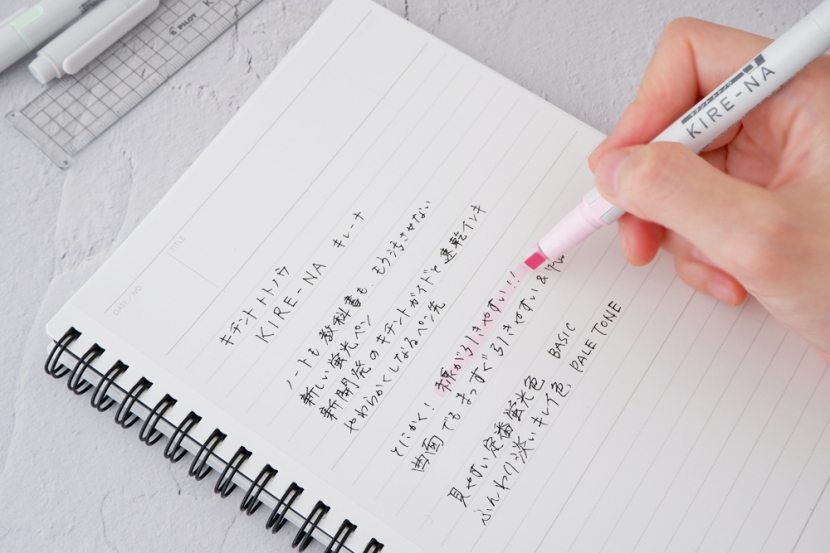 PILOT
キチントトトノウ
KIRE-NA キレーナ
ノートも教科書も、もう汚させない
新しい蛍光ペン
新開発のキチントガイドと速乾インキ
やわらかくしなるペン先
とにかく！線が引きやすい!!
曲面でもまっすぐ引きやすい&
見やすい定番蛍光色 BASIC
ふんわり淡いキレイ色、PALE TONE
TITLE
DATE/NO.
KIRE-NA